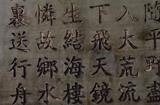 隨平野盡
入大荒流
下飛天鏡
生結海樓
憐故鄉水
裏送行舟